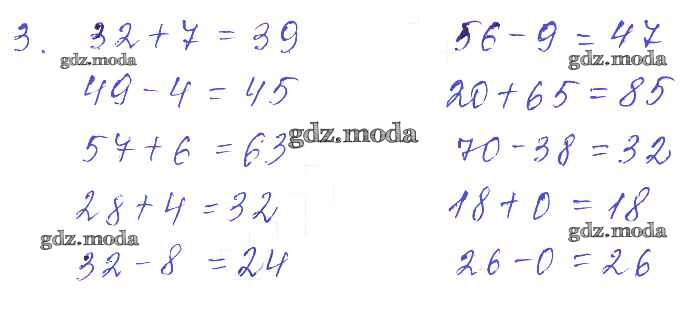 3. 32 + 7 = 39 56 - 9 = 47
gdz.moda gdz.moda
49 - 4 = 45 20 + 65 = 85
gdz.moda
57 + 6 = 63 70 - 38 = 32
28 + 4 = 32 18 + 0 = 18
gdz.moda gdz.moda
32 - 8 = 24 26 - 0 = 26